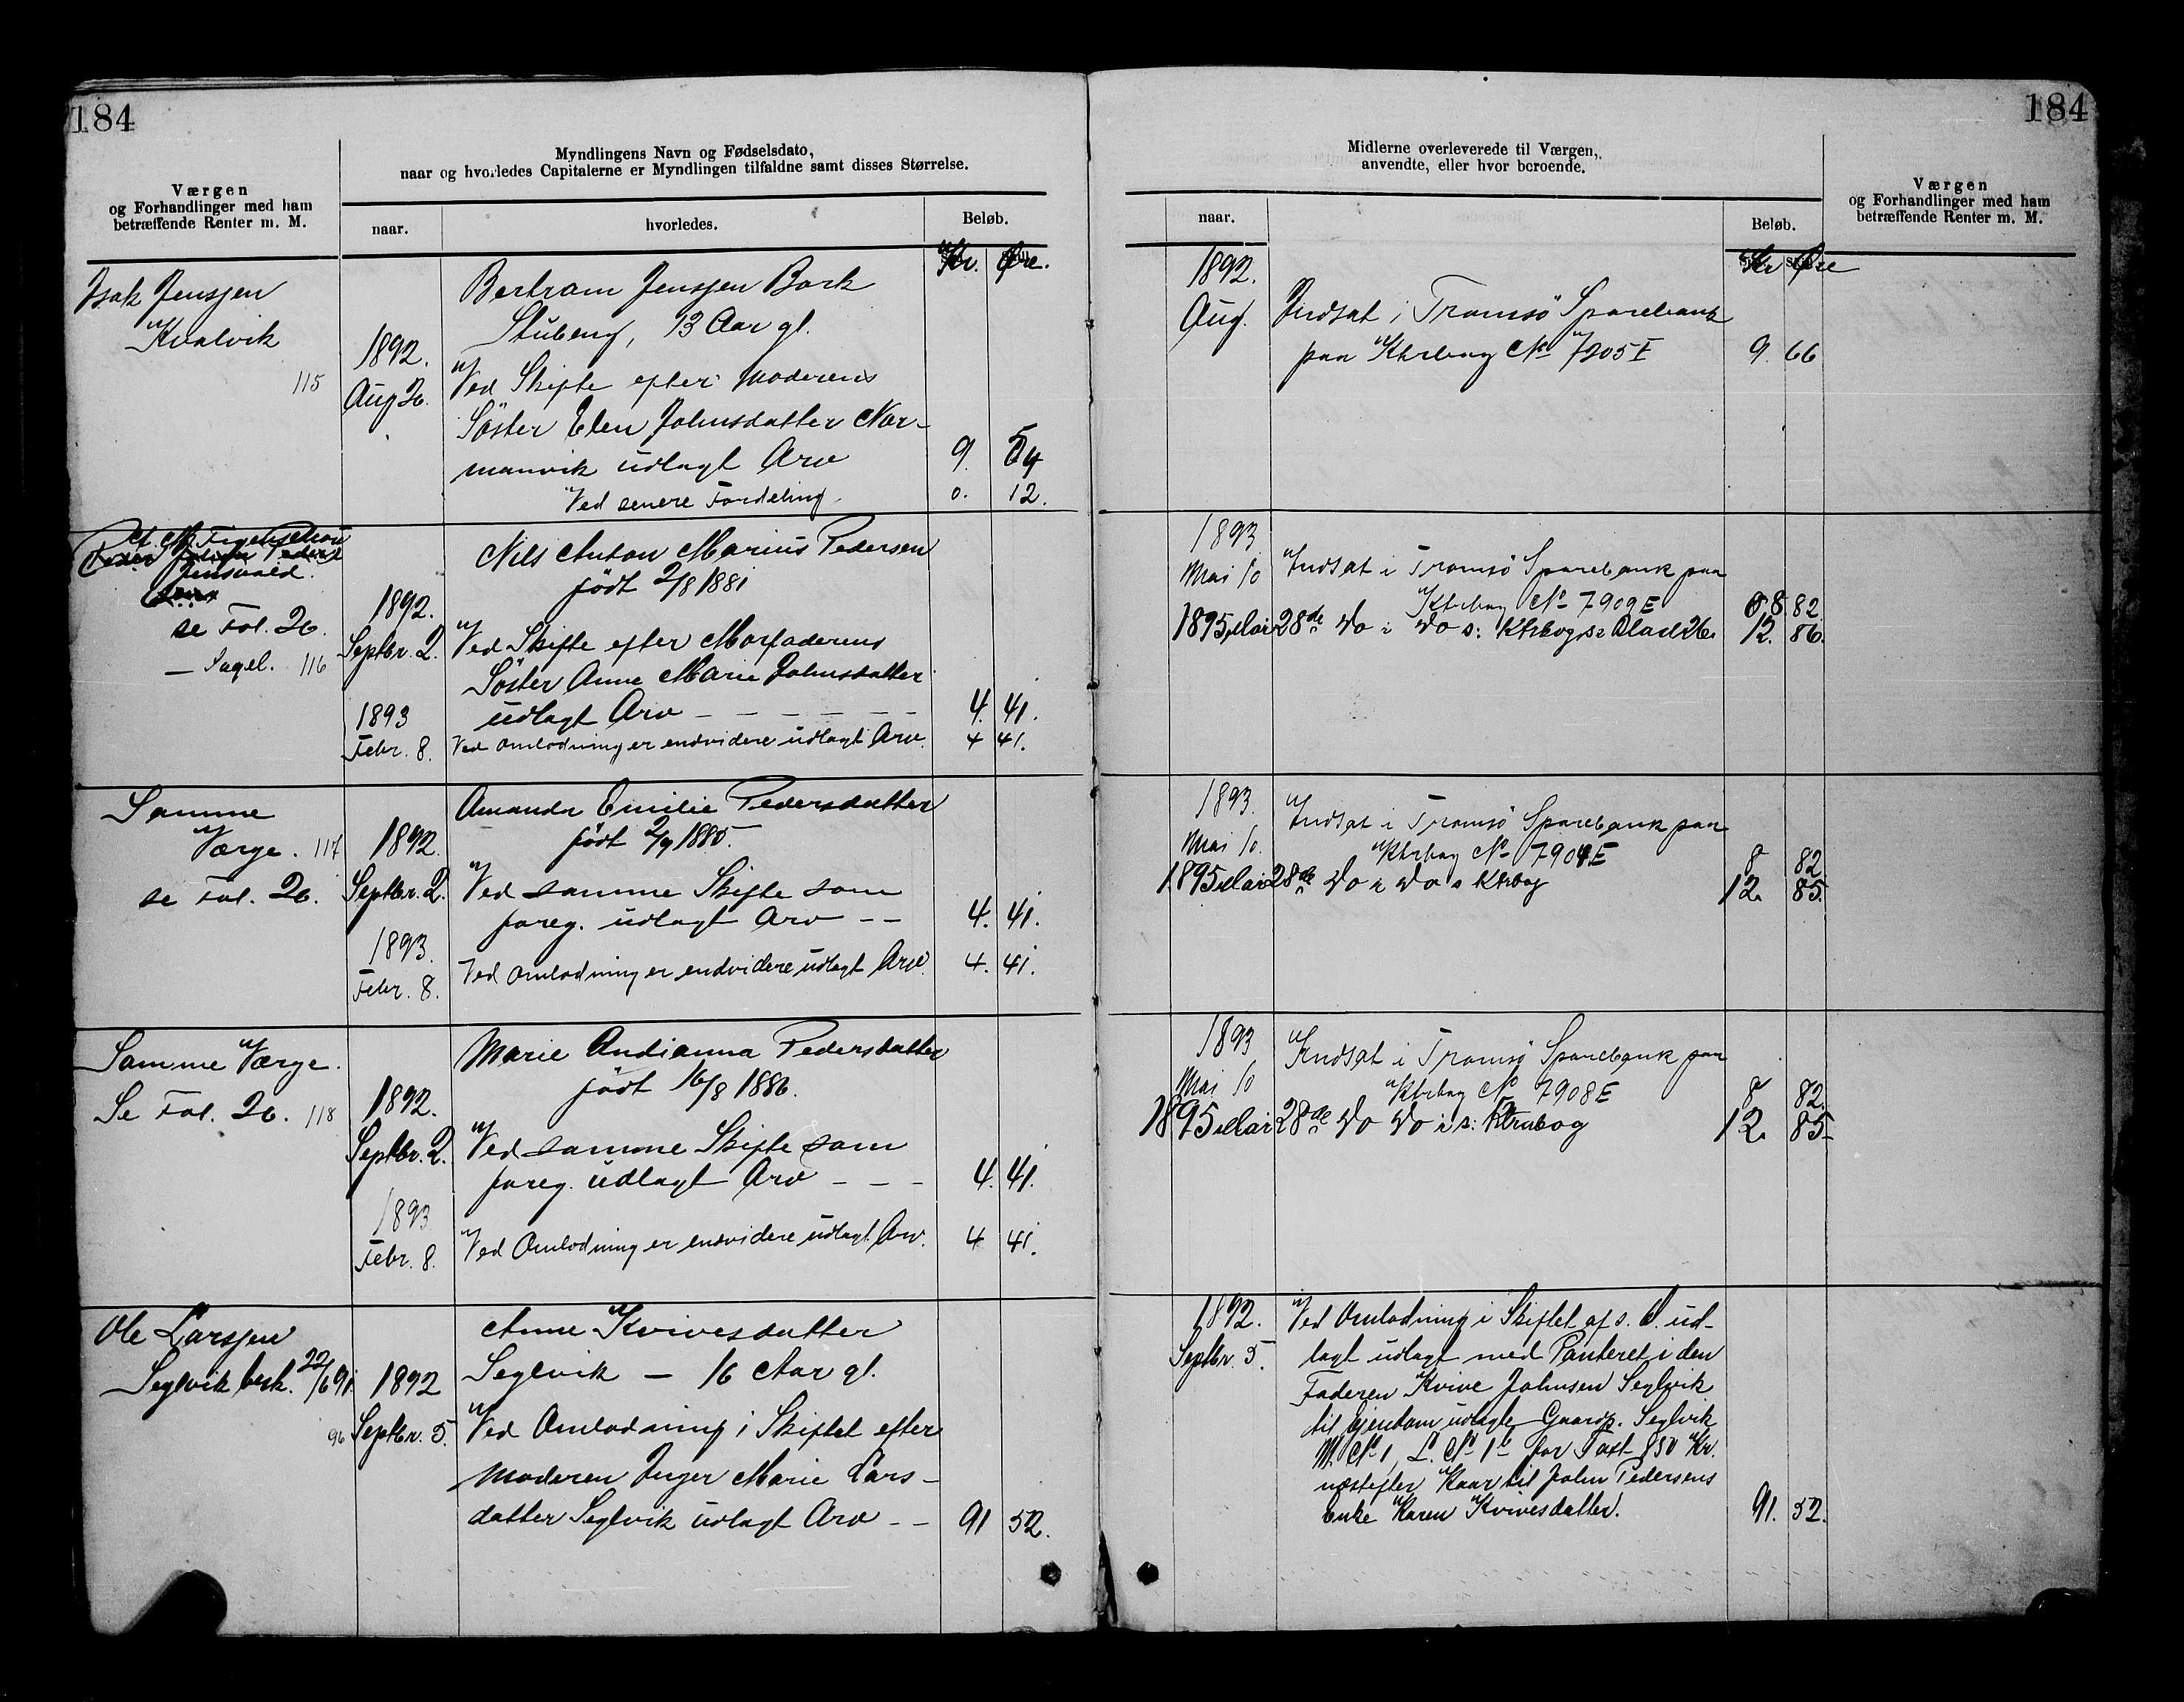 184
Værgen
og Forhandlinger med ham
betræffende Renter m. M.
Myndlingens Navn og Fødselsdato,
naar og hvorledes Capitalerne er Myndlingen tilfaldne samt disses Størrelse.
naar.
hvorledes.
Beløb.
Kr. Øre.
Isak Jenssen
Kvalvik
115
1892.
Aug 26.
Bertram Jenssen Bork
Stubeng, 13 Aar gl.
Ved Skifte efter Moderens
Söster Elen Johnsdatter Nor-
manvik udlagt Arv 9. 54
Ved senere Fordeling. 0. 12.
Peder
Jensvold.
se Fol. 26.
— Sagel. 116
1892.
Septbr. 2.
1893
Febr. 8.
Nils Anton Marius Pedersen
født 2/8 1881
Ved Skifte efter Morfaderens
Söster Anne Marie Johnsdatter
udlagt Arv — — — — — — 4. 41.
Ved Omlodning er endvidere udlagt Arv. 4 41.
Samme
Værge. 117
se Fol. 26.
1892.
Septbr. 2.
1893.
Febr. 8.
Amanda Emilie Pedersdatter
født 2/9 1885.
Ved samme Skifte som
foreg. udlagt Arv — — 4. 41.
Ved Omlodning er endvidere udlagt Arv. 4. 41.
Samme Værge.
Se Fol. 26. 118
1892.
Septbr. 2.
1893
Febr. 8.
Marie Andianna Pedersdatter
født 16/8 1886.
Ved samme Skifte som
foreg. udlagt Arv — — — 4. 41.
Ved Omlodning er endvidere udlagt Arv. 4 41.
Ole Larssen
Seglvik besk. 22/6 91.
96
1892
Septbr. 5.
Anne Kvivesdatter
Seglvik — 16 Aar gl.
Ved Omlodning i Skiftet efter
Moderen Inger Marie Lars-
datter Seglvik udlagt Arv — — 91 52.
184
Midlerne overleverede til Værgen,
anvendte, eller hvor beroende.
naar.
Beløb.
Kr Øre
Værgen
og Forhandlinger med ham
betræffende Renter m. M.
1892.
Aug. Indsat i Tromsö Sparebank
paa Ktrbog No 7205 E 9. 66
1893
Mai 10 Indsat i Tromsö Sparebank paa
Ktrbog No 7909 E 8 82
1895 Mai 28de Do i Do s: Ktrbog se Blad 26. 12. 86.
1893.
Mai 10. Indsat i Tromsö Sparebank paa
Ktrbog No 7904 E 8 82
1895 Mai 28de Do i Do s Ktrbog 12. 85.
1893
Mai 10 Indsat i Tromsö Sparebank paa
Ktrbog No 7908 E 8 82.
1895 Mai 28de Do Do i s: Ktrabog 12. 85-
1892.
Septbr. 5.
Ved Omlodning i Skiftet af s. D. ud-
lagt udlagt med Panteret i den
Faderen Kvive Johnsen Seglvik
til Eiendom udlagte Gaardp. Seglvik
M. No 1, L. No 1b for Taxt 850 Kr.
næstefter Kaar til John Pedersens
Enke Karen Kvivesdatter. 91. 52.